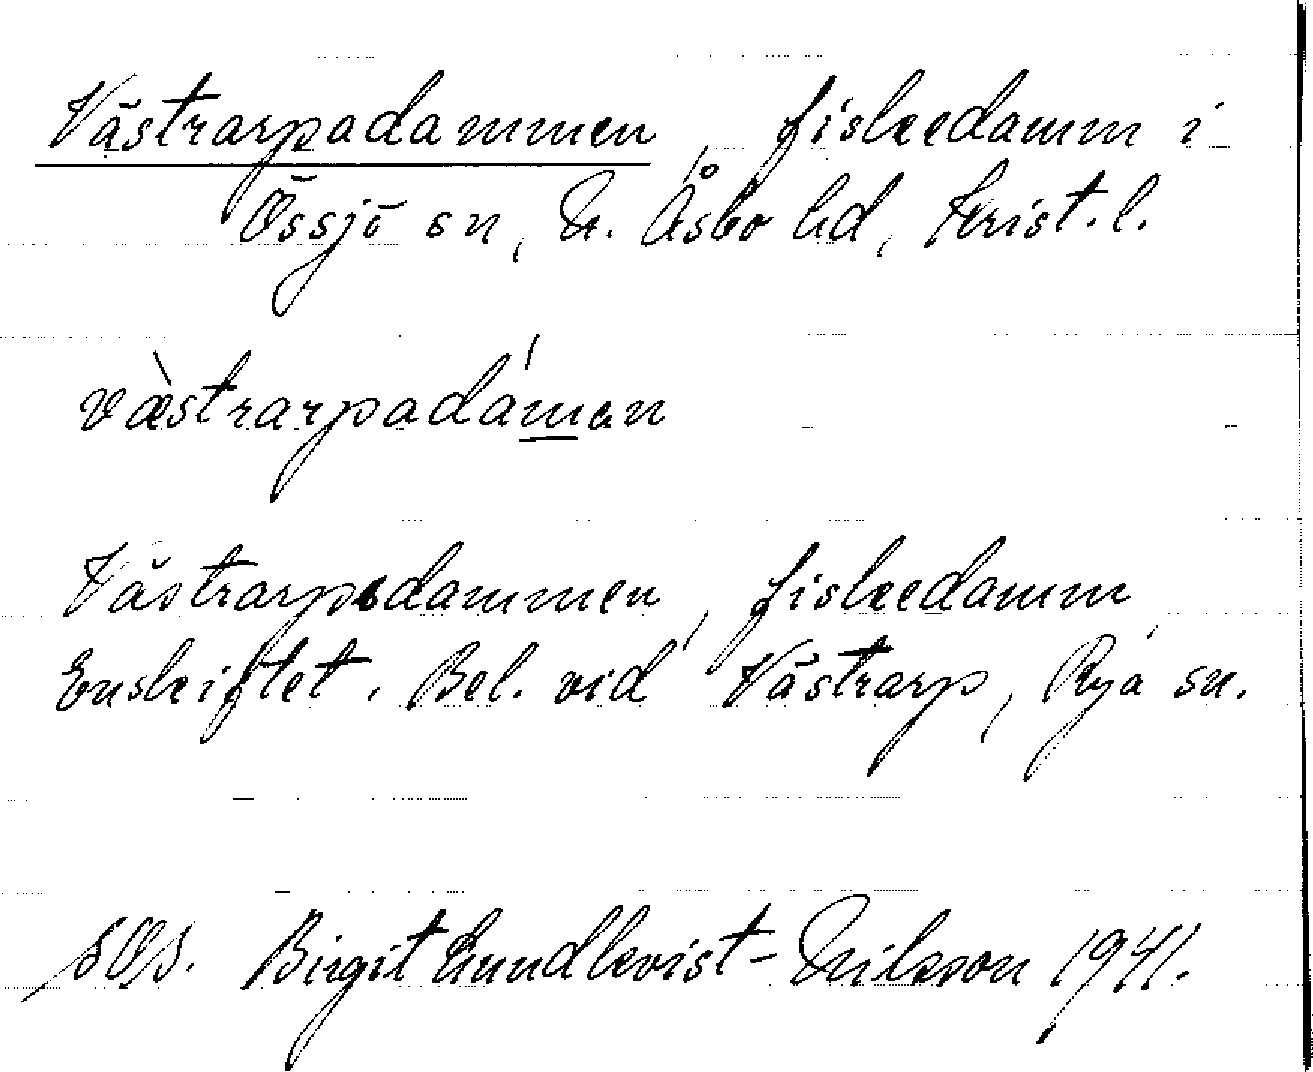 Västrarpadammen, fiskedamm i
Össjö sn, N. Åsbo hd, Krist. l.
væ̀strarpadámen
Västrarpsdammen, fiskedamm
Enskiftet. Bel. vid Västrarp, Rya sn.
Birgit Lundkvist-Nilsson 1941.